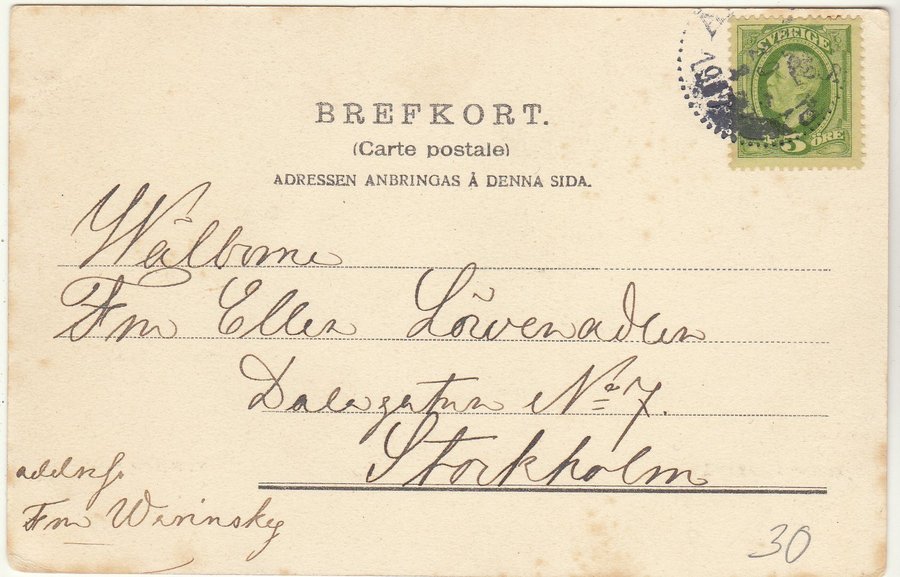 SVERIGE
5 ÖRE
BREFKORT.
(Carte postale)
ADRESSEN ANBRINGAS Å DENNA SIDA.
Wälborne
Frn Ellen Löwenadler
Dalagatan No 7.
Stockholm
Frn Warinsky
30